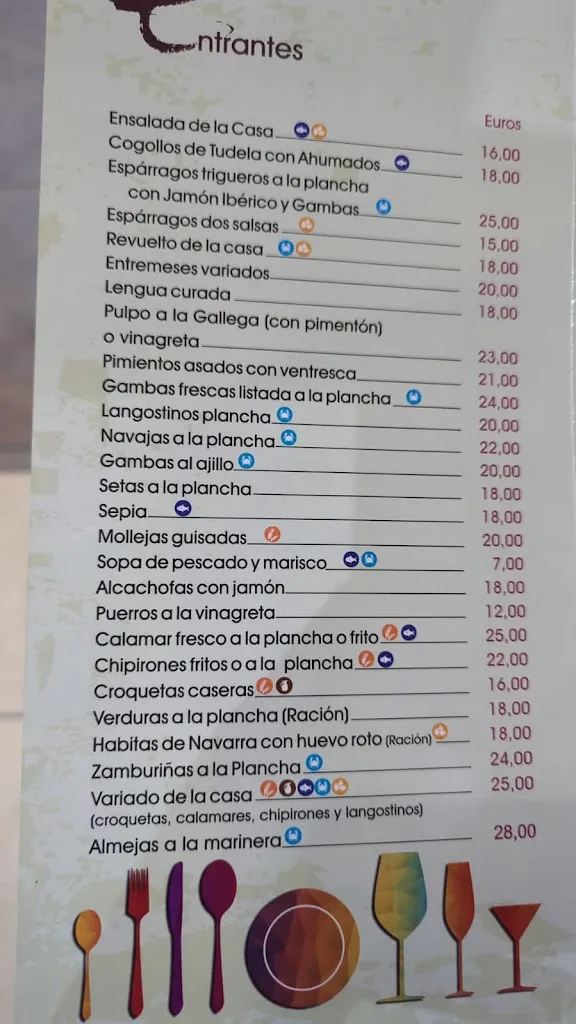 Entrantes
Euros
Ensalada de la Casa 16,00
Cogollos de Tudela con Ahumados 18,00
Espárragos trigueros a la plancha
con Jamón Ibérico y Gambas 25,00
Espárragos dos salsas 15,00
Revuelto de la casa 18,00
Entremeses variados 20,00
Lengua curada 18,00
Pulpo a la Gallega (con pimentón)
o vinagreta 23,00
Pimientos asados con ventresca 21,00
Gambas frescas listada a la plancha 24,00
Langostinos plancha 20,00
Navajas a la plancha 22,00
Gambas al ajillo 20,00
Setas a la plancha 18,00
Sepia 18,00
Mollejas guisadas 20,00
Sopa de pescado y marisco 7,00
Alcachofas con jamón 18,00
Puerros a la vinagreta 12,00
Calamar fresco a la plancha o frito 25,00
Chipirones fritos o a la plancha 22,00
Croquetas caseras 16,00
Verduras a la plancha (Ración) 18,00
Habitas de Navarra con huevo roto (Ración) 18,00
Zamburiñas a la Plancha 24,00
Variado de la casa 25,00
(croquetas, calamares, chipirones y langostinos)
Almejas a la marinera 28,00